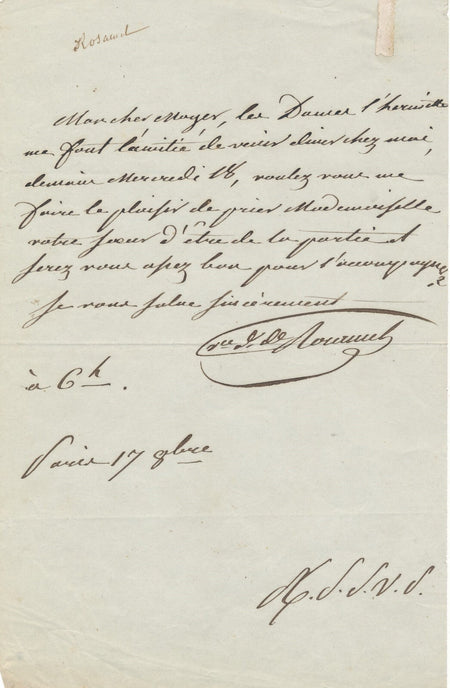 Mon cher Mayer, les Dames l'herminette
me font l'amitié de venir diner chez moi,
demain Mercredi 18, voulez vous me
faire le plaisir de prier Mademoiselle
votre sœur d'être de la partie et
serez vous assez bon pour l'accompagner?
Je vous salue sincèrement
à 6h.
Paris 17 8bre
R.S.S.V.S.